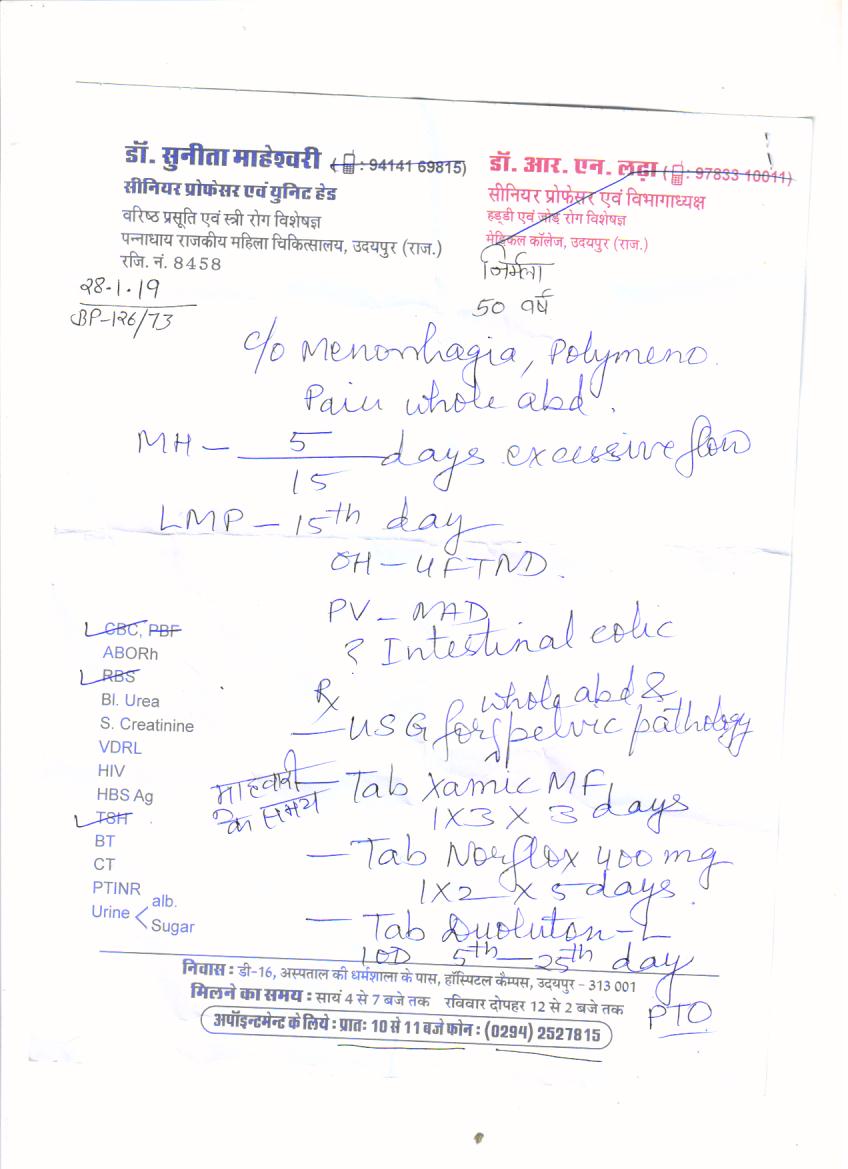 डॉ. सुनीता माहेश्वरी (: 94141 69815)
सीनियर प्रोफेसर एवं यूनिट हेड
वरिष्ठ प्रसूति एवं स्त्री रोग विशेषज्ञ
पन्नाधाय राजकीय महिला चिकित्सालय, उदयपुर (राज.)
रजि. नं. 8458
डॉ. आर. एन. लढ़ा (: 97833 10011)
सीनियर प्रोफेसर एवं विभागाध्यक्ष
हड्डी एवं जोड़ रोग विशेषज्ञ
मेडिकल कॉलेज, उदयपुर (राज.)
28.1.19
BP-126/73
निर्मला
50 वर्ष
c/o Menorrhagia, Polymeno.
Pain whole abd.
MH – 5/15 days excessive flow
LMP – 15th day
OH – 4FTND.
PV – NAD
? Intestinal colic
CBC, PBF
ABORh
RBS
Bl. Urea
S. Creatinine
VDRL
HIV
HBS Ag
TSH
BT
CT
PTINR
Urine < alb.
Sugar
Rx
whole abd &
– USG for pelvic pathology
माहवारी के समय
– Tab Xamic MF
1X3 X 3 days
– Tab Norflox 400 mg
1X2 X 5 days.
– Tab Duoluton-L
1OD 5th – 25th day
PTO
निवास : डी-16, अस्पताल की धर्मशाला के पास, हॉस्पिटल कैम्पस, उदयपुर - 313 001
मिलने का समय : सायं 4 से 7 बजे तक रविवार दोपहर 12 से 2 बजे तक
अपॉइन्टमेन्ट के लिये : प्रातः 10 से 11 बजे फोन : (0294) 2527815